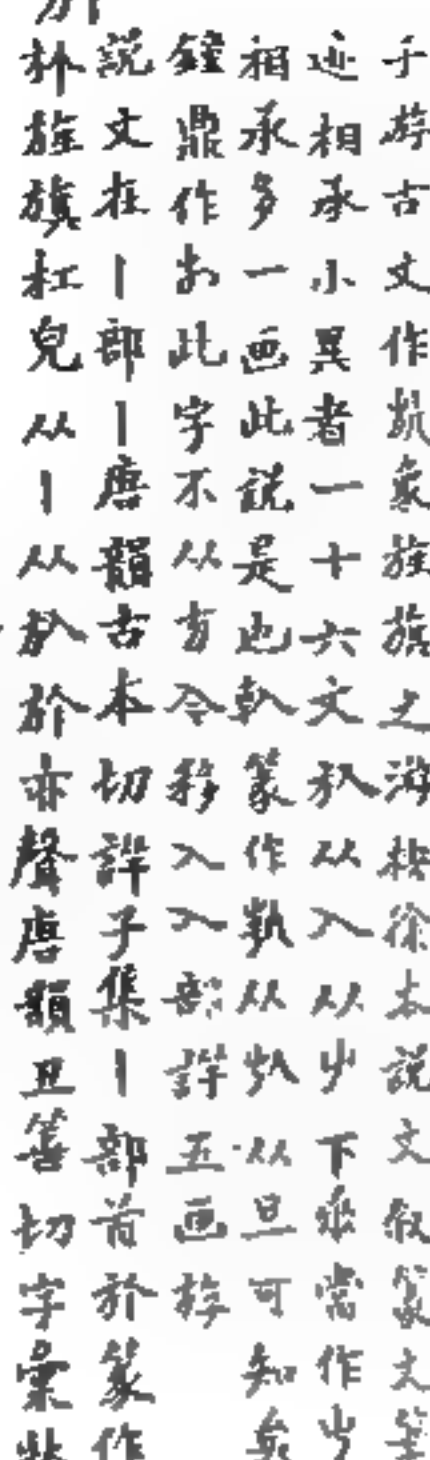 子斿古文作㫃象旌旗之游按徐本說文㫃篆文
迹相承小異者一十六文㫃从入从屮下垂當作屮
相承多一画此說是也倝篆作𠦝从㫃从旦可知矣
鐘鼎作此字不从方今移入入部詳五画斿
說文在丨部丨唐韻古本切詳子集丨部首於篆作
旌旗杠皃从丨从㫃㫃亦聲唐韻丑善切字彙